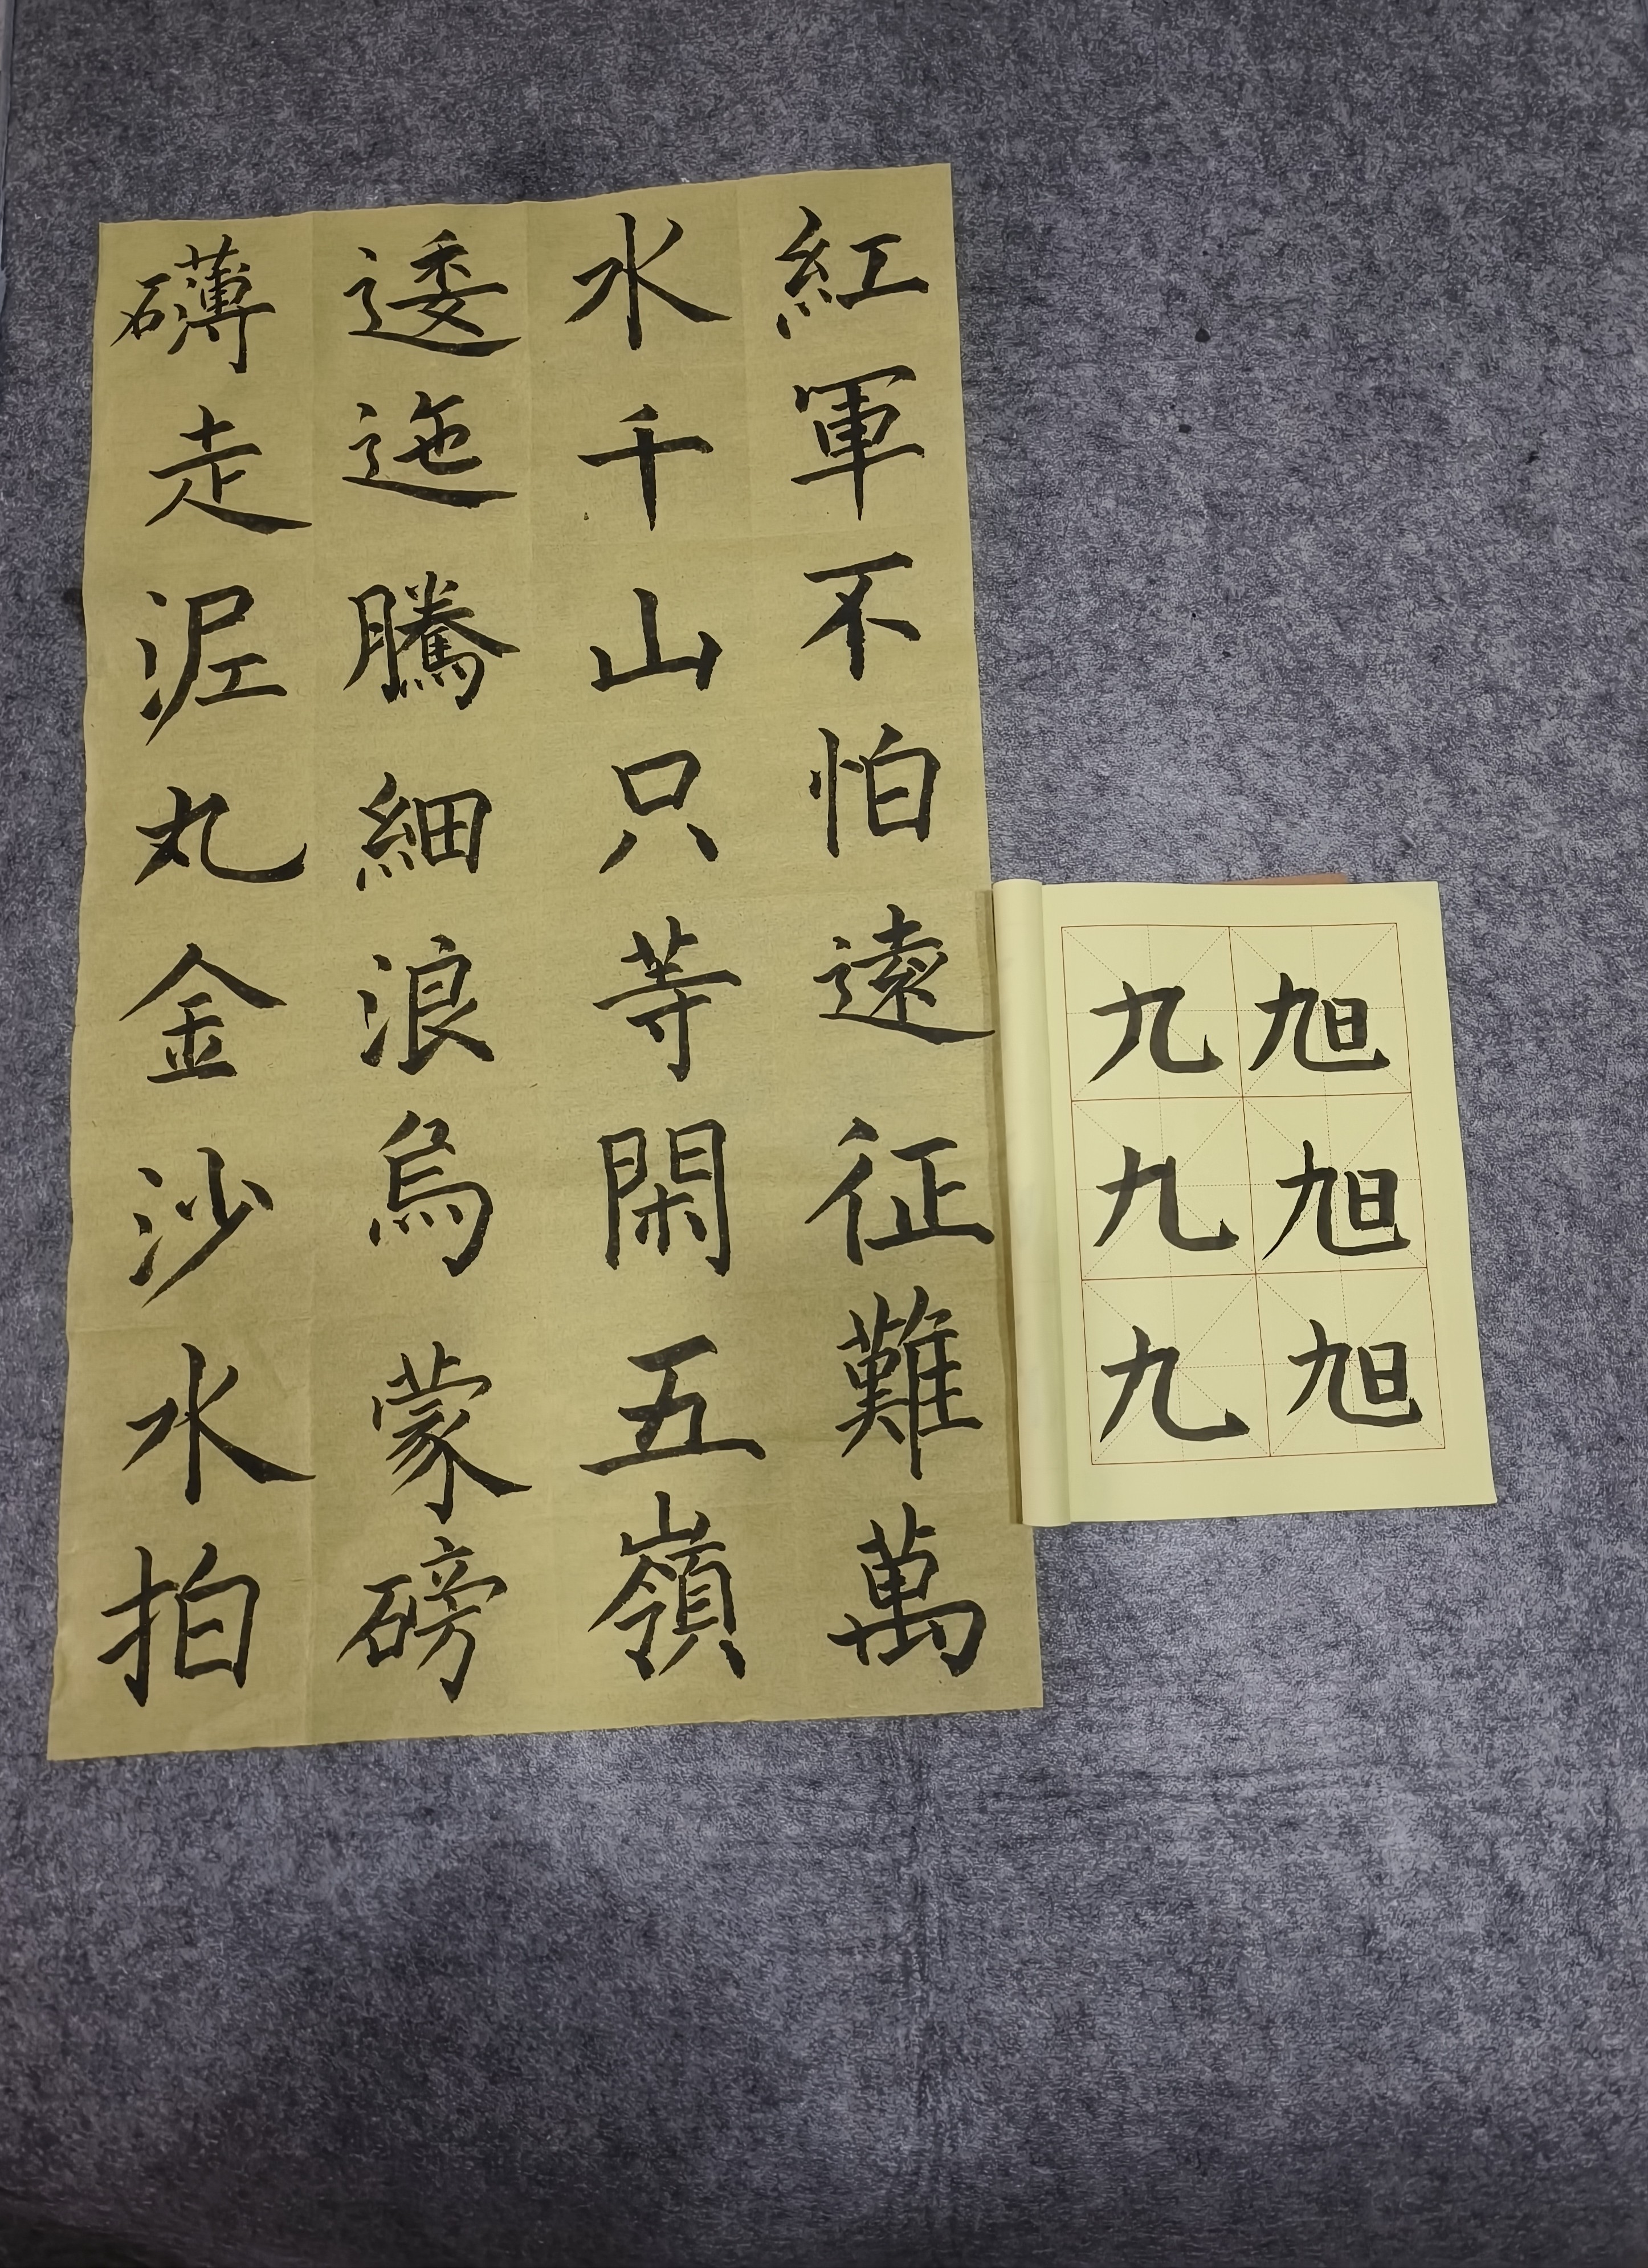 紅軍不怕遠征難萬
水千山只等閑五嶺
逶迤騰細浪烏蒙磅
礴走泥丸金沙水拍
旭旭旭
九九九